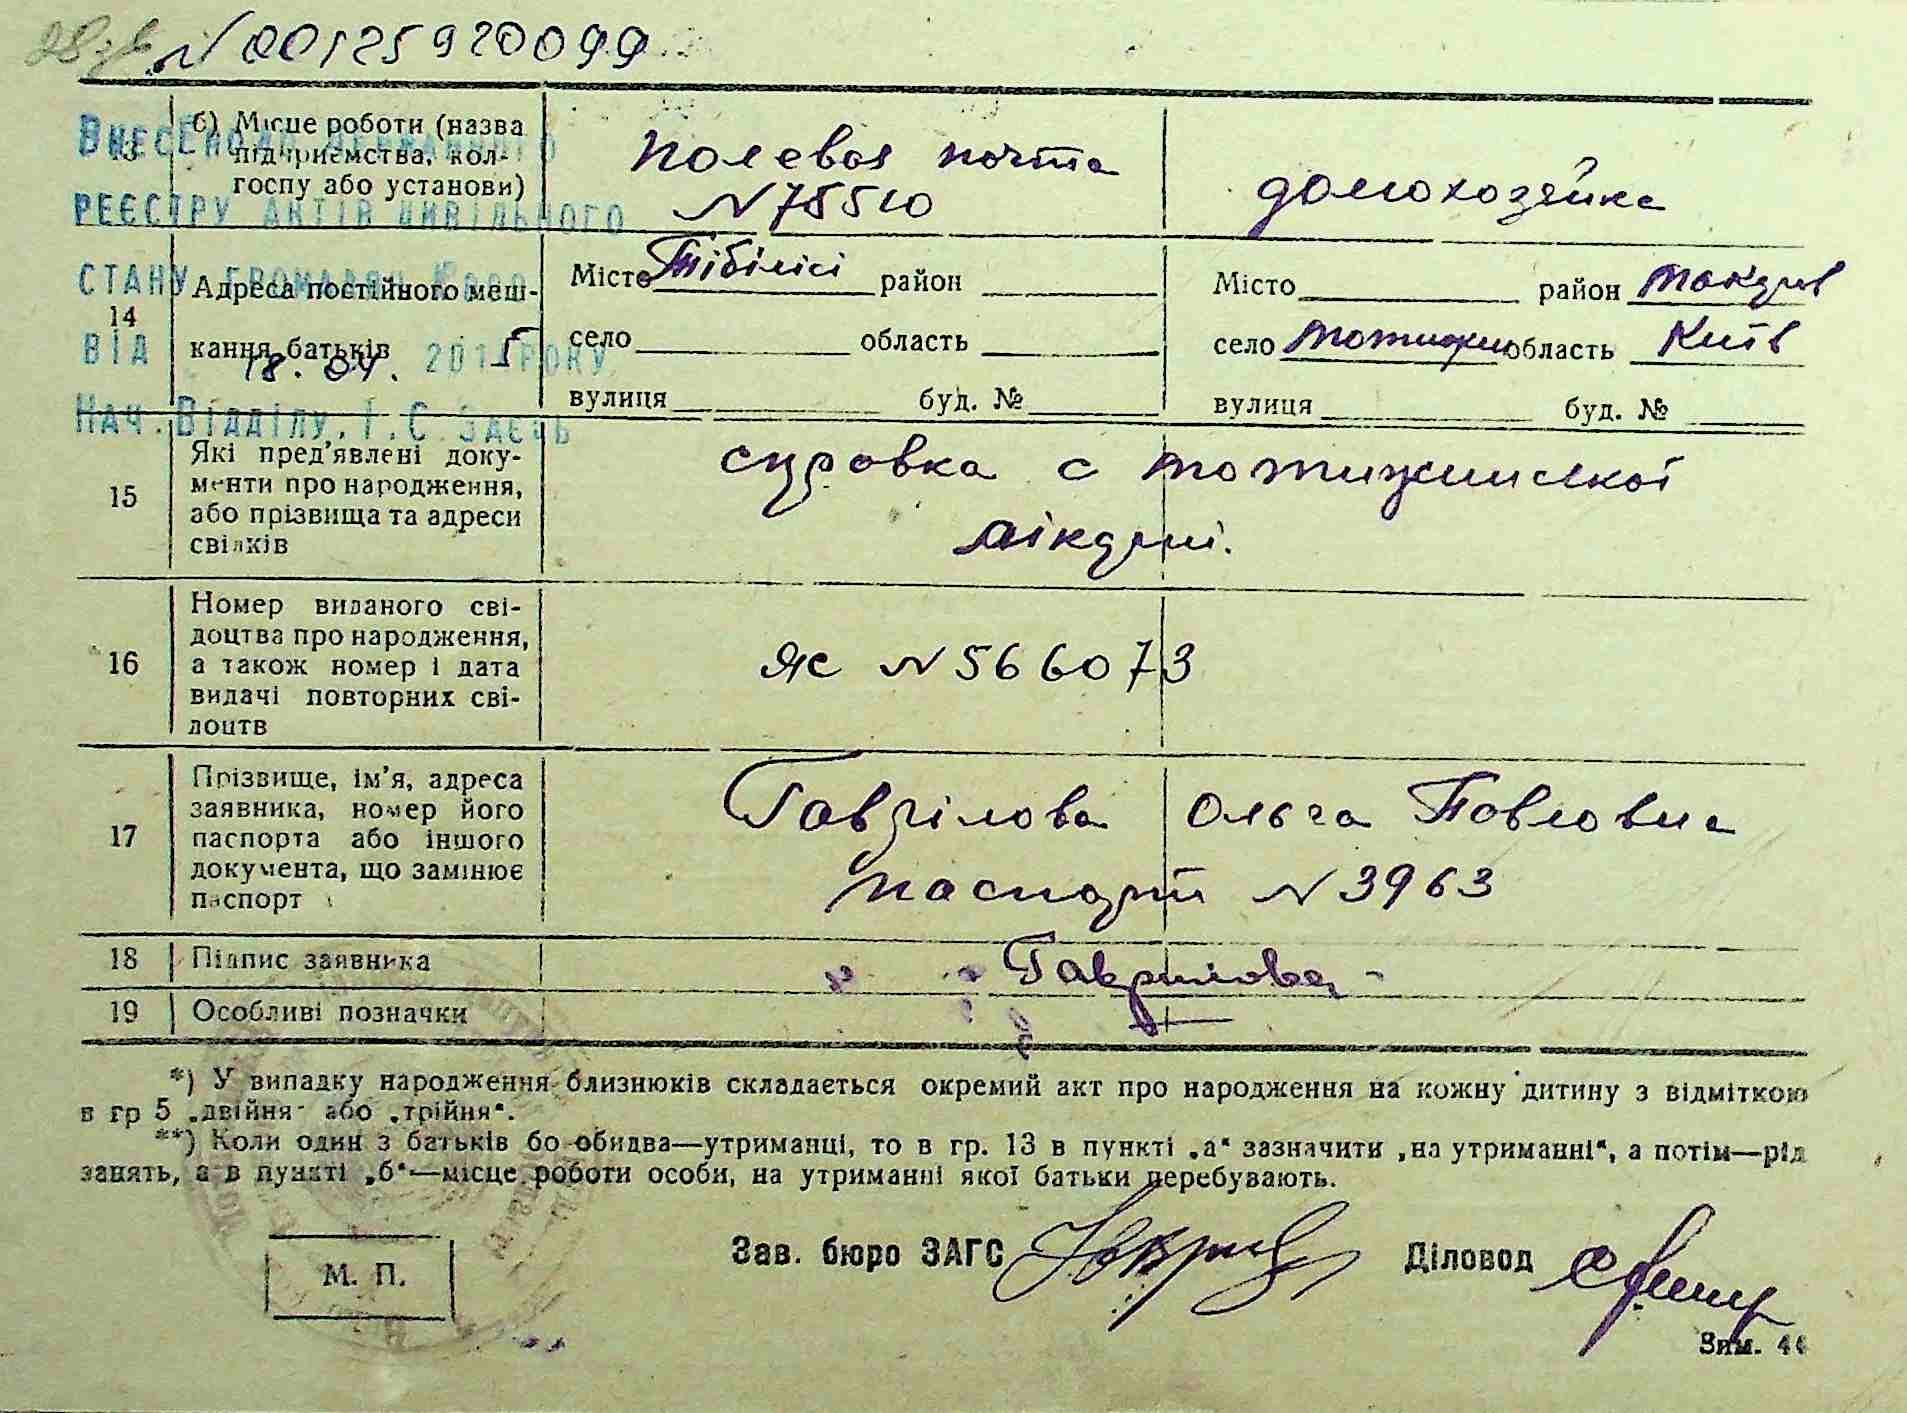 N00125920099
Внесено до Державного
реєстру актів цивільного
стану громадян
від 18.04. 2015 року
Нач. Відділу. І.С. Заєць
13 б) Місце роботи (назва підприємства, колгоспу або установи)
полевая почта N 75510
домохозяйка
14 Адреса постійного мешкання батьків
Місто Тібілісі район
село область
вулиця буд. №
Місто район Макарів
село Мотижин область Київ
вулиця буд. №
15 Які пред’явлені документи про народження, або прізвища та адреси свідків
справка с Мотижинської
лікарні.
16 Номер виданого свідоцтва про народження, а також номер і дата видачі повторних свідоцтв
ЯС N 566073
17 Прізвище, ім’я, адреса заявника, номер його паспорта або іншого документа, що замінює паспорт
Гаврілова Ольга Павловна
паспорт N 3963
18 Підпис заявника
Гаврилова
19 Особливі позначки
*) У випадку народження близнюків складається окремий акт про народження на кожну дитину з відміткою
в гр 5 „двійня“ або „трійня“.
**) Коли один з батьків бо обидва—утриманці, то в гр. 13 в пункті „а“ зазначити „на утриманні“, а потім—рід
занять, а в пункті „б“—місце роботи особи, на утриманні якої батьки перебувають.
Зав. бюро ЗАГС
Діловод
М. П.
Зам. 44